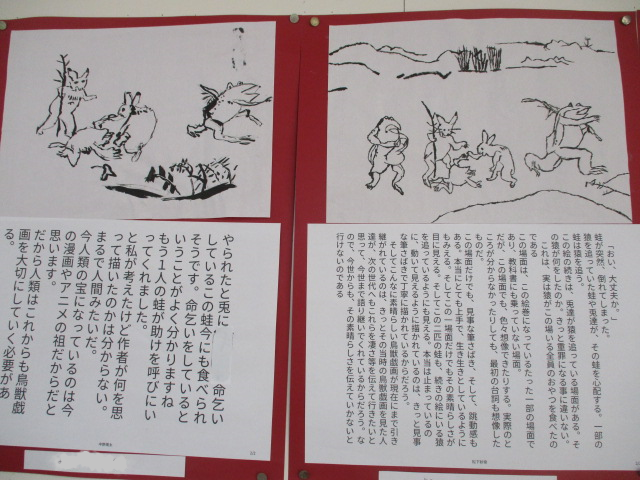 「おい、大丈夫か。」
蛙が突然、倒れてしまった。
猿を追っていた蛙や兎達が、その蛙を心配する。一部の
蛙は猿を追う。
この絵の続きは、兎達が猿を追っている場面がある。そ
の猿が何をしたのか。きっと重罪になる事に違いない。
これは、実は猿がこの場いる全員のおやつを食べたの
である
この場面は、この絵巻になっているたった一部の場面で
あり、教科書にも乗っていない場面。
だが、この場面でも、色々想像できたりする。実際のと
ころが分からなかったりしても、最初の台詞も想像した
ものだ。
この場面だけでも、見事な筆さばき、そして、跳動感も
ある。本当にとても上手で、生き生きとしているように
もみえる。そしてこの一場面だけでもその素晴らしさが
目に見える。そしてこの二匹の蛙も、続きの絵にいる猿
を追っているようにも見える。本当は止まっているの
に、動いて見えるように描かれているのは、きっと見事
な筆さばきで丁寧に描かれているからだろう。
そしてこんなに素晴らしい鳥獣戯画が現在にまで引き
継がれているのは、きっとその当時の鳥獣戯画を見た人
達が、次の世代へもこれらを凄さ等を伝えて行きたいと
思って、今世まで語り継いでくれているからだろう。な
ので、今世からも、その素晴らしさを伝えていかないと
行けないのである
やられたと兎に 命乞い
しているこの蛙今にも食べられ
そうです。命乞いをしていると
いうことがよく分かりますね
もう1人の蛙が助けを呼びにい
ってくれました。
と私が考えたけど作者が何を思
って描いたのかは分からない。
まるで人間みたいだ。
今人類の宝になっているのは今
の漫画やアニメの祖だからだと
思います。
だから人類はこれからも鳥獣戯
画を大切にしていく必要があ
る。